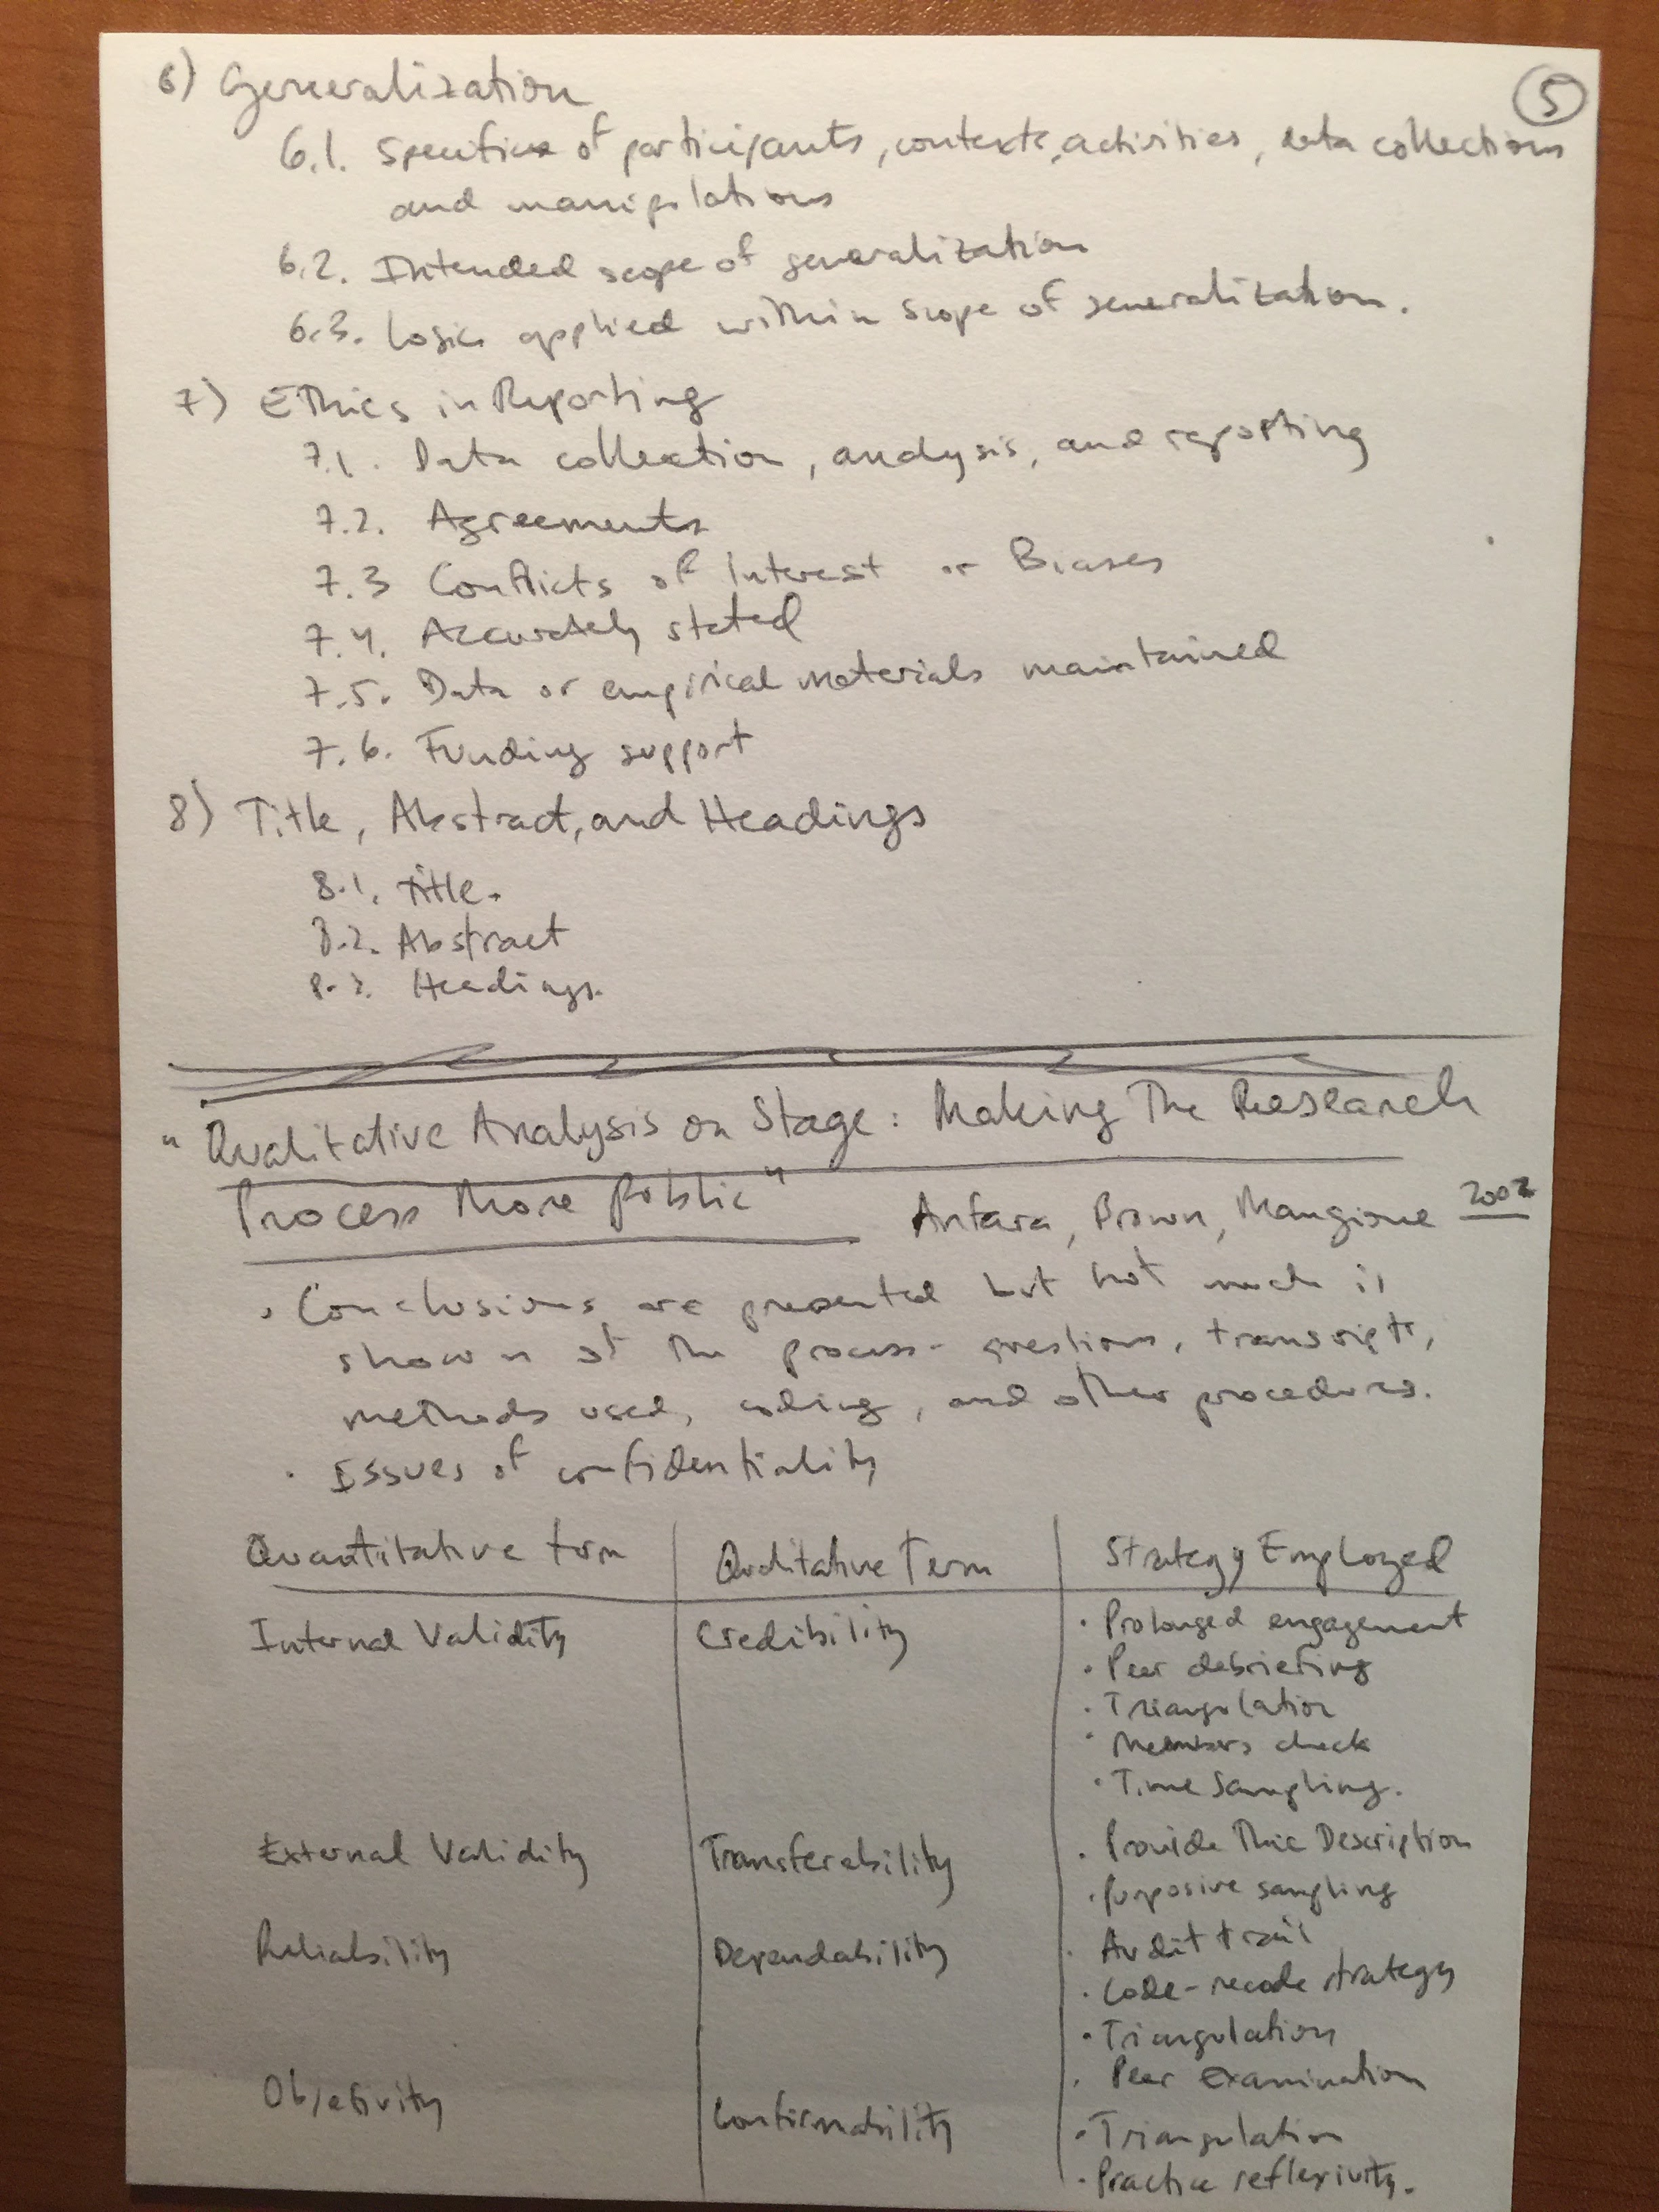 5
6) Generalization
6.1. Specifics of participants, contexts, activities, data collections
and manipulations
6.2. Intended scope of generalization
6.3. Logic applied within scope of generalization.
7) Ethics in Reporting
7.1. Data collection, analysis, and reporting
7.2. Agreements
7.3 Conflicts of Interest or Biases
7.4. Accurately stated
7.5. Data or empirical materials maintained
7.6. Funding support
8) Title, Abstract, and Headings
8.1. Title.
8.2. Abstract
8.3. Headings.
"Qualitative Analysis on Stage: Making The Research
Process More Public" Anfara, Brown, Mangione 2002
• Conclusions are presented but not much is
shown of the process - questions, transcripts,
methods used, coding, and other procedures.
• Issues of confidentiality
Quantitative term Qualitative Term Strategy Employed
Internal Validity Credibility • Prolonged engagement
• Peer debriefing
• Triangulation
• Members check
• Time Sampling.
External Validity Transferability • Provide Thic Description
• purposive sampling
Reliability Dependability • Audit trail
• Code-recode strategy
• Triangulation
• Peer Examination
Objetivity Confirmability • Triangulation
• Practice reflexivity.